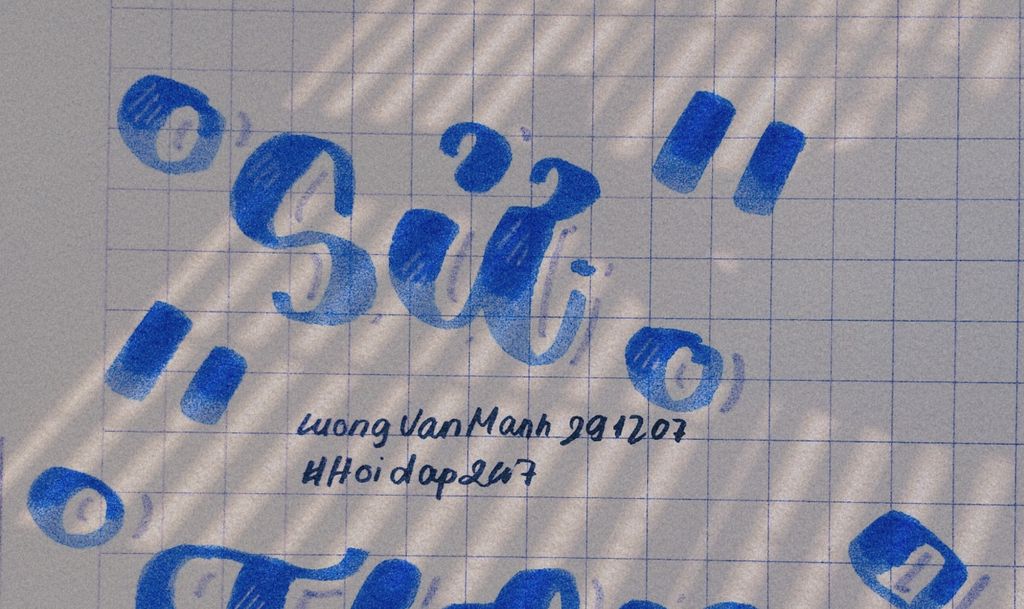 Sử
LuongVanManh 291207
#Hoidap247